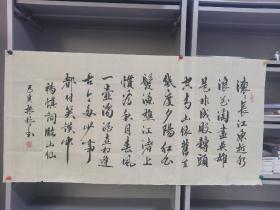 滚々長江東逝水
浪花淘盡英雄
是非成敗轉頭
空青山依舊在
幾度夕陽紅白
髮漁樵江渚上
慣看秋月春風
一壺濁酒喜相逢
古今多少事
都付笑談中
楊慎詞臨江仙